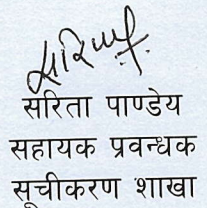 सरिता
सरिता पाण्डेय
सहायक प्रवन्धक
सूचीकरण शाखा